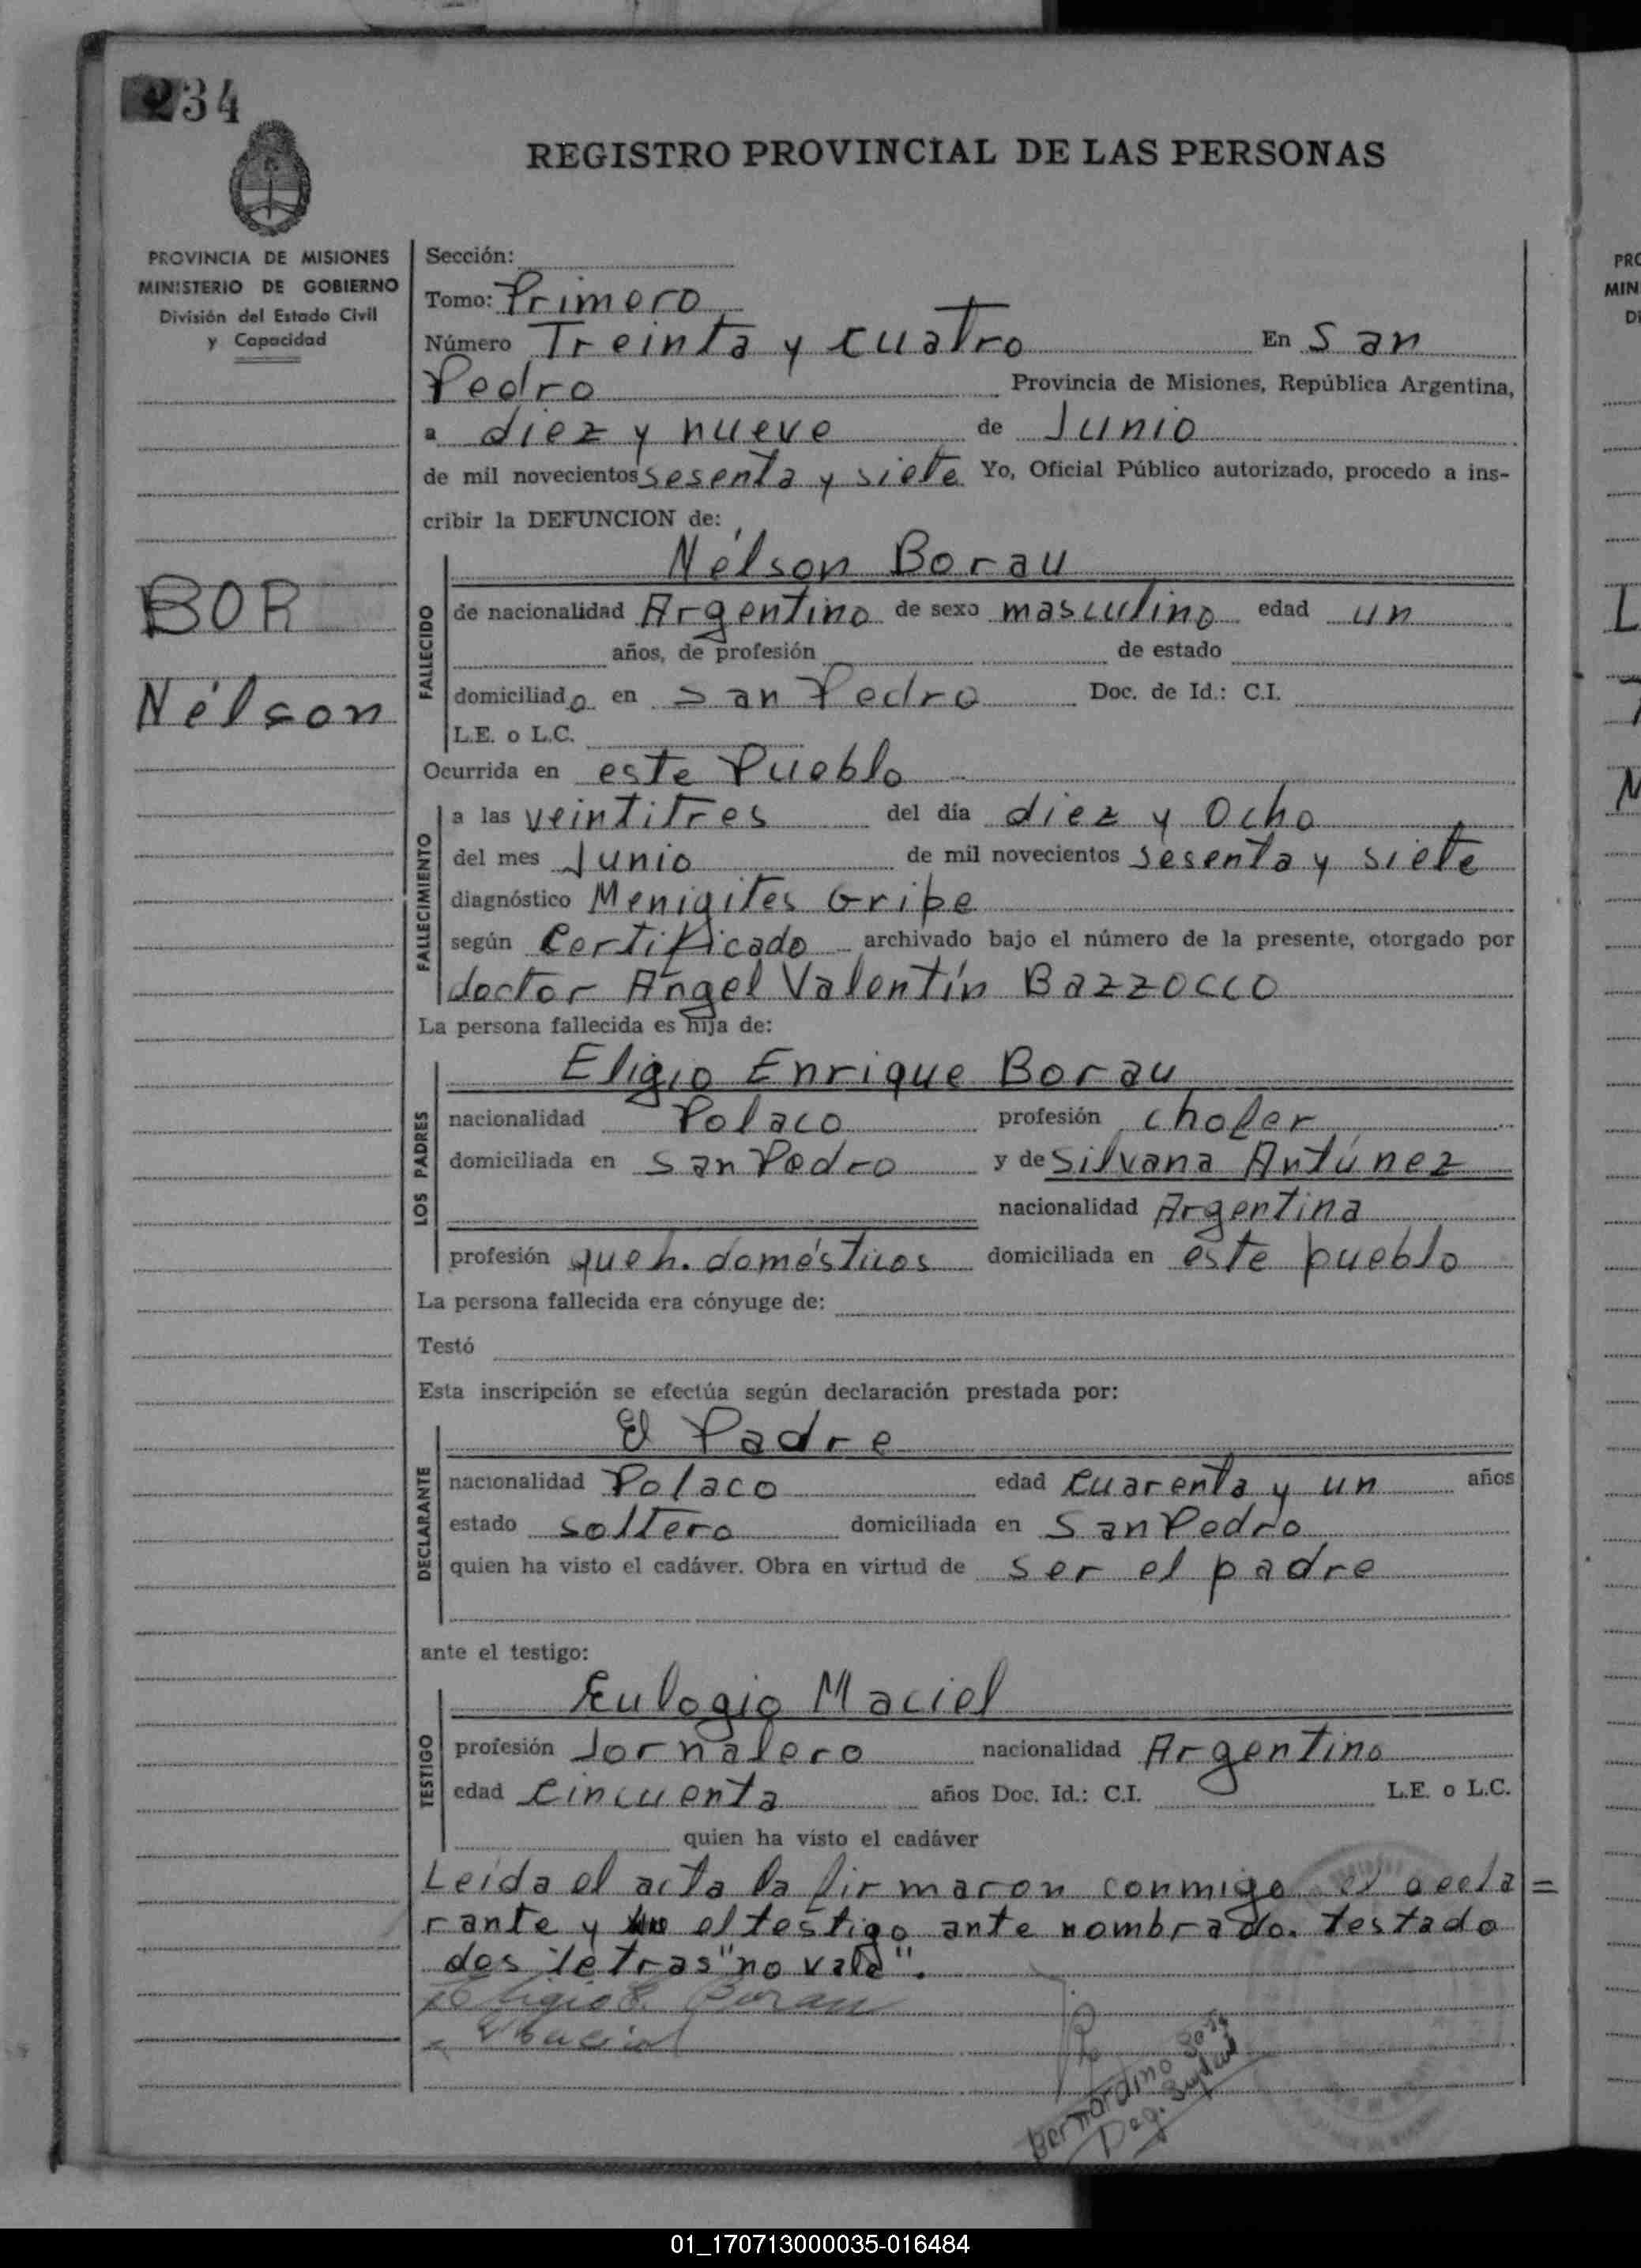 234
REGISTRO PROVINCIAL DE LAS PERSONAS
PROVINCIA DE MISIONES
MINISTERIO DE GOBIERNO
División del Estado Civil
y Capacidad
BOR
Nélson
Sección:
Tomo: Primero
Número Treinta y cuatro En San
Pedro Provincia de Misiones, República Argentina,
a diez y nueve de Junio
de mil novecientos sesenta y siete Yo, Oficial Público autorizado, procedo a ins-
cribir la DEFUNCION de:
Nélson Borau
FALLECIDO
de nacionalidad Argentino de sexo masculino edad un
años, de profesión de estado
domiciliado en San Pedro Doc. de Id.: C.I.
L.E. o L.C.
Ocurrida en este Pueblo
FALLECIMIENTO
a las veintitres del día diez y Ocho
del mes Junio de mil novecientos sesenta y siete
diagnóstico Menigites Gripe
según Certificado archivado bajo el número de la presente, otorgado por
doctor Angel Valentín Bazzocco
La persona fallecida es hija de:
LOS PADRES
Eligio Enrique Borau
nacionalidad Polaco profesión chofer
domiciliada en San Pedro y de Silvana Antúnez
nacionalidad Argentina
profesión queh. domésticos domiciliada en este pueblo
La persona fallecida era cónyuge de:
Testó
Esta inscripción se efectúa según declaración prestada por:
DECLARANTE
El Padre
nacionalidad Polaco edad cuarenta y un años
estado soltero domiciliada en San Pedro
quien ha visto el cadáver. Obra en virtud de ser el padre
ante el testigo:
TESTIGO
Eulogio Maciel
profesión Jornalero nacionalidad Argentino
edad Cincuenta años Doc. Id.: C.I. L.E. o L.C.
quien ha visto el cadáver
Leída el acta la firmaron conmigo el decla=
rante y el testigo ante nombrado. testado
dos letras "no vale".
Eligio E. Borau
E Maciel
Bernardino
01_170713000035-016484